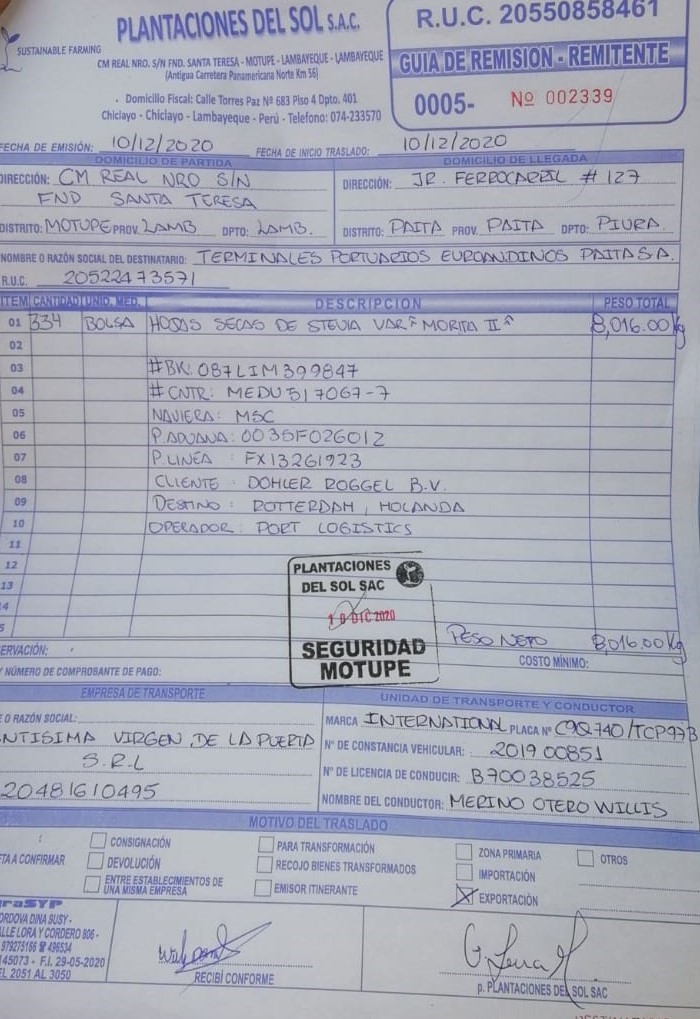 PLANTACIONES DEL SOL S.A.C.
SUSTAINABLE FARMING
CM REAL NRO. S/N FND. SANTA TERESA - MOTUPE - LAMBAYEQUE - LAMBAYEQUE
(Antigua Carretera Panamericana Norte Km 56)
. Domicilio Fiscal: Calle Torres Paz Nº 683 Piso 4 Dpto. 401
Chiclayo - Chiclayo - Lambayeque - Perú - Telefono: 074-233570
R.U.C. 20550858461
GUIA DE REMISION - REMITENTE
0005- Nº 002339
FECHA DE EMISIÓN: 10/12/2020 FECHA DE INICIO TRASLADO: 10/12/2020
DOMICILIO DE PARTIDA
DIRECCIÓN: CM REAL NRO S/N
FND SANTA TERESA
DISTRITO: MOTUPE PROV. LAMB DPTO: LAMB.
DOMICILIO DE LLEGADA
DIRECCIÓN: JR. FERROCARRIL # 127
DISTRITO: PAITA PROV. PAITA DPTO: PIURA.
NOMBRE O RAZÓN SOCIAL DEL DESTINATARIO: TERMINALES PORTUARIOS EUROANDINOS PAITA S.A.
R.U.C. 20522473571
ITEM CANTIDAD UNID. MED. DESCRIPCION PESO TOTAL
01 334 BOLSA HOJAS SECAS DE STEVIA VAR "MORITA II" 8,016.00 Kg
02
03 #BK: 087LIM399847
04 # CNTR: MEDU 517067-7
05 NAVIERA: MSC
06 P.ADUANA: 0035F026012
07 P.LINEA : FX13261923
08 CLIENTE : DOHLER ROGGEL B.V.
09 DESTINO : ROTTERDAM, HOLANDA
10 OPERADOR: PORT LOGISTICS
11
12
13
4
5
PLANTACIONES
DEL SOL SAC
10 DIC 2020
SEGURIDAD
MOTUPE
PESO NETO 8,016.00 Kg
ERVACIÓN:
COSTO MÍNIMO:
Y NÚMERO DE COMPROBANTE DE PAGO:
EMPRESA DE TRANSPORTE
E O RAZÓN SOCIAL:
NTISIMA VIRGEN DE LA PUERTA
S.R.L
20481610495
UNIDAD DE TRANSPORTE Y CONDUCTOR
MARCA INTERNATIONAL PLACA Nº C9Q740/TCP97B
Nº DE CONSTANCIA VEHICULAR: 2019 00851
Nº DE LICENCIA DE CONDUCIR: B70038525
NOMBRE DEL CONDUCTOR: MERINO OTERO WILLIS
MOTIVO DEL TRASLADO
TA A CONFIRMAR
CONSIGNACIÓN
DEVOLUCIÓN
ENTRE ESTABLECIMIENTOS DE
UNA MISMA EMPRESA
PARA TRANSFORMACIÓN
RECOJO BIENES TRANSFORMADOS
EMISOR ITINERANTE
ZONA PRIMARIA
IMPORTACIÓN
EXPORTACIÓN
OTROS
graSYP
ORDOVA DINA SUSY -
ALLE LORA Y CORDERO 806 -
979275166 ☎ 496534
45073 - F.I. 29-05-2020
EL 2051 AL 3050
RECIBÍ CONFORME
p. PLANTACIONES DEL SOL SAC